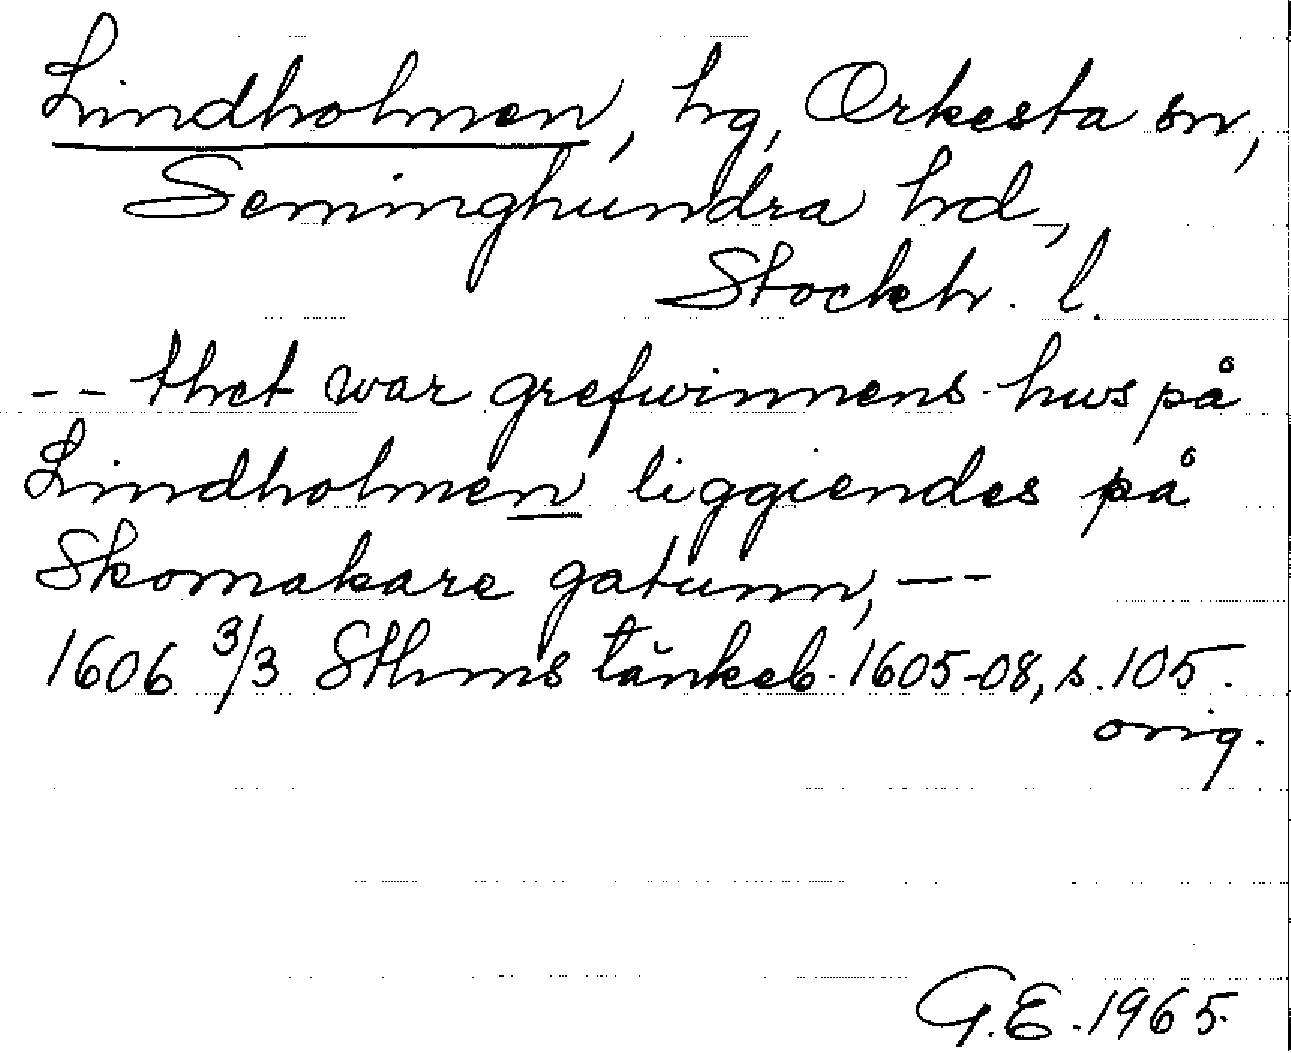 Lindholmen, hg, Orkesta sn,
Seminghundra hd,
Stockh. l.
-- thet war grefwinnens hws på
Lindholmen liggiendes på
Skomakare gatunn, --
1606 3/3 Sthms tänkeb. 1605-08, s. 105.
orig.
G.E. 1965.